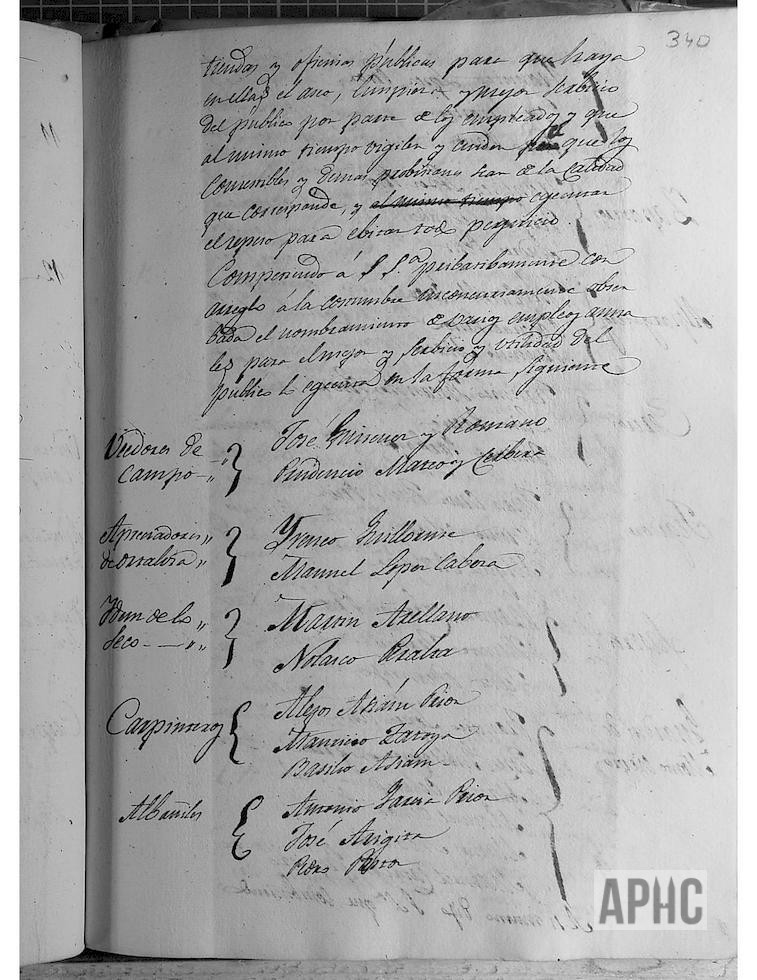 340
tiendas y oficinas públicas para que haya
en ellas el aseo, limpieza y mejor serbicio
del público por parte de los empleados y que
al mismo tiempo vigilen y cuiden que los
comestibles y demas sean de la calidad
que corresponde, y al mismo tiempo egecutar
el repeso para ebitar todo perjuicio
Competiendo á S. S.ª pribatibamente con
arreglo á la costumbre obser
bada el nombramiento de varios empleos anua
les para el mejor serbicio y utilidad del
público lo egecuta en la forma siguiente
Veedores de
Campo
José Gimenez y Romano
Prudencio Marco y Cerbera
Apreciadores
de ortaliza
Yreneo Guillorme
Manuel Lopez Cabeza
Ydem de lo
seco
Martin Arellano
Nolasco Peralta
Carpinteros
Alejos Adám Prior
Mauricio Zaroya
Basilio Adám
Albañiles
Antonio Garcia Prior
José
Pedro
APHC